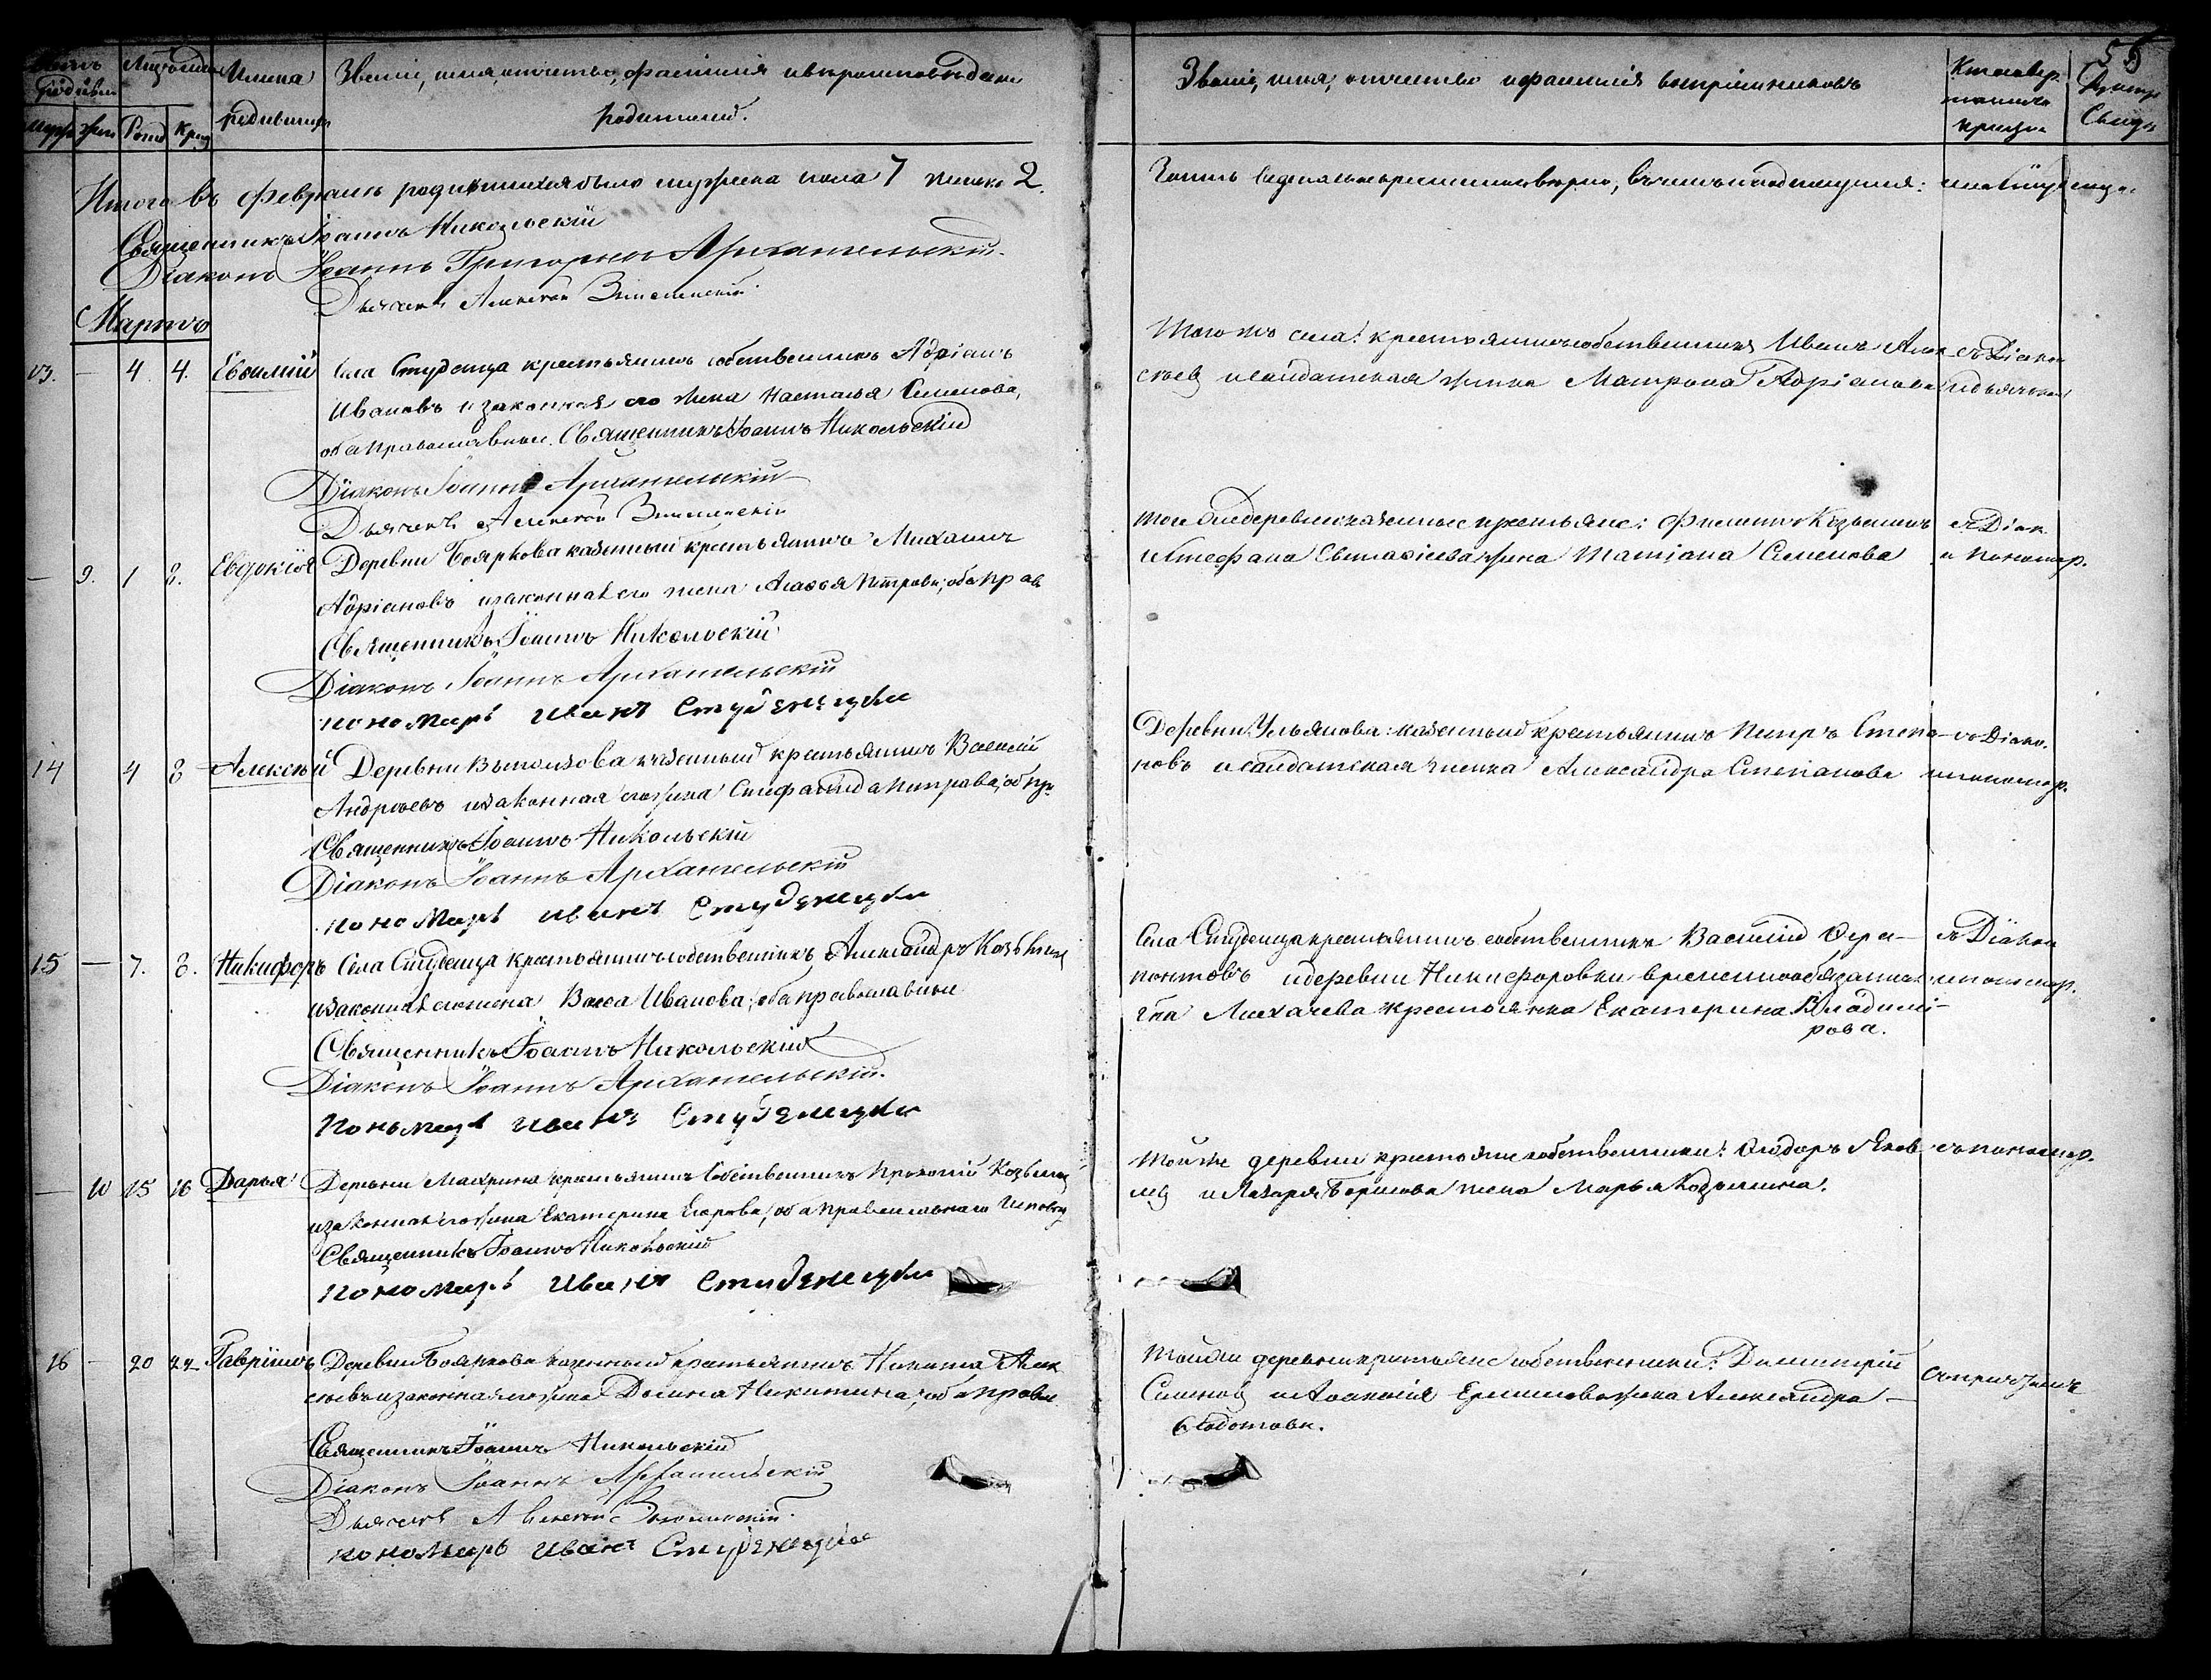 55
Имена родившихся
Званіе, имя, отчество, фамилія и вѣроисповѣданіе
родителей.
Званіе, имя, отчество и фамилія воспріемниковъ
Итого въ Февралѣ родившихся было мужеска пола 7 женска 2.
Священникъ Іоаннъ Никольскій
Діаконъ Іоаннъ Григорьевъ Архангельскій.
Дьячекъ Алексѣй
Мартъ
13. — 4. 4. Евѳимій
Села Студенца крестьянинъ собственникъ Адріанъ
Ивановъ и законная его жена Настасья Семенова,
оба православные. Священникъ Іоаннъ Никольскій
Діаконъ Іоаннъ Архангельскій
Дьячекъ Алексѣй
Того жъ села: крестьянинъ собственникъ Иванъ Алек-
сѣевъ и солдатская жена Матрона Адріанова
съ Діакон
и дьячком
— 9. 1 8. Евдокія
Деревни Бояркова казенный крестьянинъ Михаилъ
Адріановъ и законная его жена Агаѳья Петрова, оба прав
Священникъ Іоаннъ Никольскій
Діаконъ Іоаннъ Архангельскій
Пономарь Иванъ Студенецки
Той же деревни казенные крестьяне: Филиппъ Козьминъ
и Стефана жена Татіана Семенова
съ Діак.
и пономар.
14 4 8 Алексѣй
Деревни казенный крестьянинъ Василій
Андреевъ и законная его жена Стефанида Петрова, об пр
Священникъ Іоаннъ Никольскій
Діаконъ Іоаннъ Архангельскій
Пономарь Иванъ Студенецки
Деревни Ульянова: казенный крестьянинъ Петръ Степа-
новъ и солдатская женка Александра Степанова
съ Діако.
и пономар.
15 — 7. 8. Никифоръ
Села Студенца крестьянинъ собственникъ Александръ Козьмин
и законная его жена Васса Иванова, оба православные
Священникъ Іоаннъ Никольскій
Діаконъ Іоаннъ Архангельскій.
Пономарь Иванъ Студенецки
Села Студенца крестьянинъ собственникъ Василій Ѳера-
понтовъ и деревни Никифоровки временнообязанная
г на Лихачева крестьянка Екатерина Владимі-
рова.
съ Діакон
и пономар.
— 10 15 16 Дарья
Деревни Махрина крестьянинъ Собственникъ Прокопій Козьмин
и законная его жена Екатерина Егорова, оба православнаго исповѣд
Священникъ Іоаннъ Никольскій
Пономарь Иванъ Студенецки
Той же деревни крестьяне собственники: Ѳедоръ Яков-
лев и Лазаря Борисова жена Марья Козьмина.
съ пономар.
16 — 20 24 Гавріилъ
Деревни Бояркова казенный крестьянинъ Никита Алек
сѣевъ и законная его жена Домна Никитина, оба правос
Священникъ Іоаннъ Никольскій
Діаконъ Іоаннъ Архангельскій
Дьячекъ Алексѣй
Пономарь Иванъ Студенецки
Той же деревни крестьяне собственники: Димитрій
Семенов и жена Александра
Ѳедотова.
Съ причтомъ